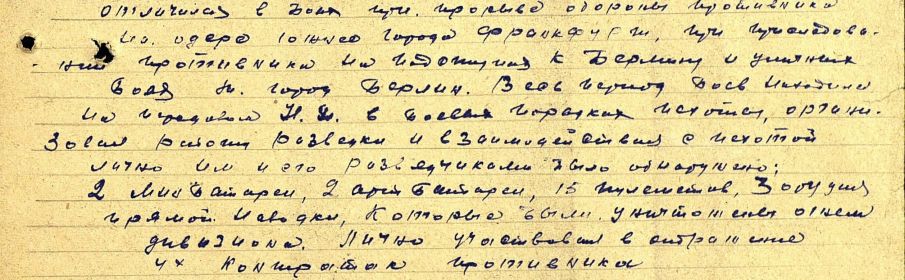 отличился в боях при прорыве обороны противника
на одере южнее города Франкфурт, при преследова-
нии противника на подступах к Берлину и уличных
боях в город Берлин. Весь период боев находился
на передовом Н.П. в боевых порядках пехоты, органи-
зовал работу разведки и взаимодействия с пехотой
лично им и его разведчиками было обнаружено:
2 минбатареи, 2 артбатареи, 15 пулеметов, 3 орудия
прямой наводки, которые были уничтожены огнем
дивизиона. Лично участвовал в отражение
4х контратак противника